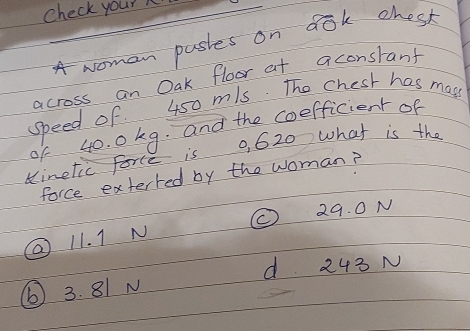 Check your
A woman pushes on oak chest
across an Oak floor at a constant
speed of 450 m/s. The chest has mass
of 40.0 kg. and the coefficient of
Kinetic force is 0,620 what is the
force exterted by the woman?
a 11.1 N
c 29.0 N
b 3.81 N
d 243 N